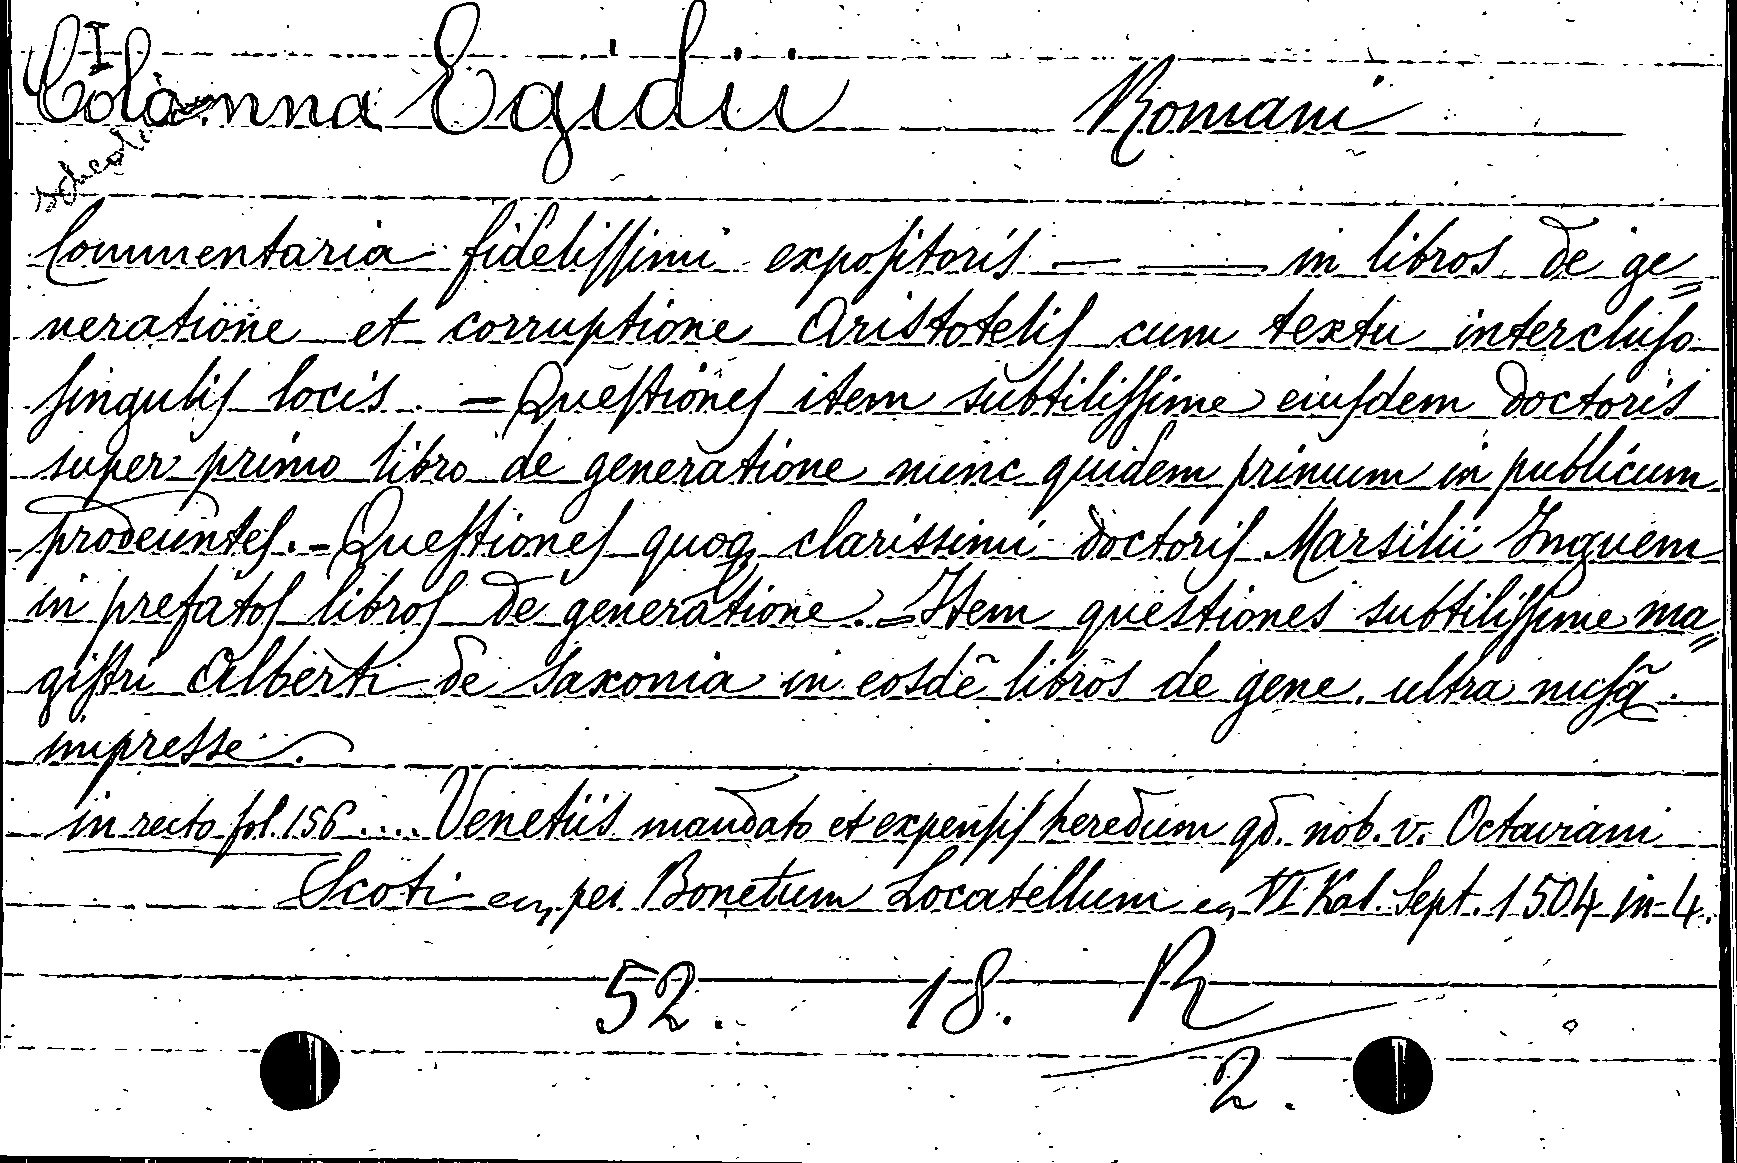 I
Colonna Egidii Romani
Commentaria fideliſſimi expoſitoris — — in libros de ge=
neratione et corruptione Aristoteliſ cum textu intercluſo
ſinguliſ locis. — Queſtioneſ item subtiliſſime eiuſdem doctoris
super primo libro de generatione nunc quidem primum in publicum
prodeunteſ. - Queſtioneſ quoq clarissimi doctoriſ Marsilii Inguem
in prefatoſ libroſ de generatione. - Item questiones subtiliſſime ma=
giſtri Alberti de Saxonia in eosdē libros de gene. ultra nuſq̃.
impresse.
in recto fol. 156 .... Venetiis mandato et expenſiſ heredum qd. nob. v. Octaviani
Scoti per Bonetum Locatellum VI Kal. Sept. 1504 in-4.
52. 18. R
2.